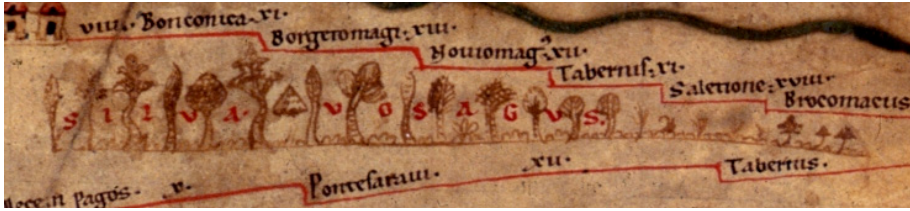 viiii. Bonconica. xi.
Borgetomagi. xiii.
Noviomag. xii.
Tabernis. xi.
Saletione. xviii.
Brocomacus
SILVA. VOSAGVS.
Pagos. v.
Pontesaravi. xii.
Tabernis.